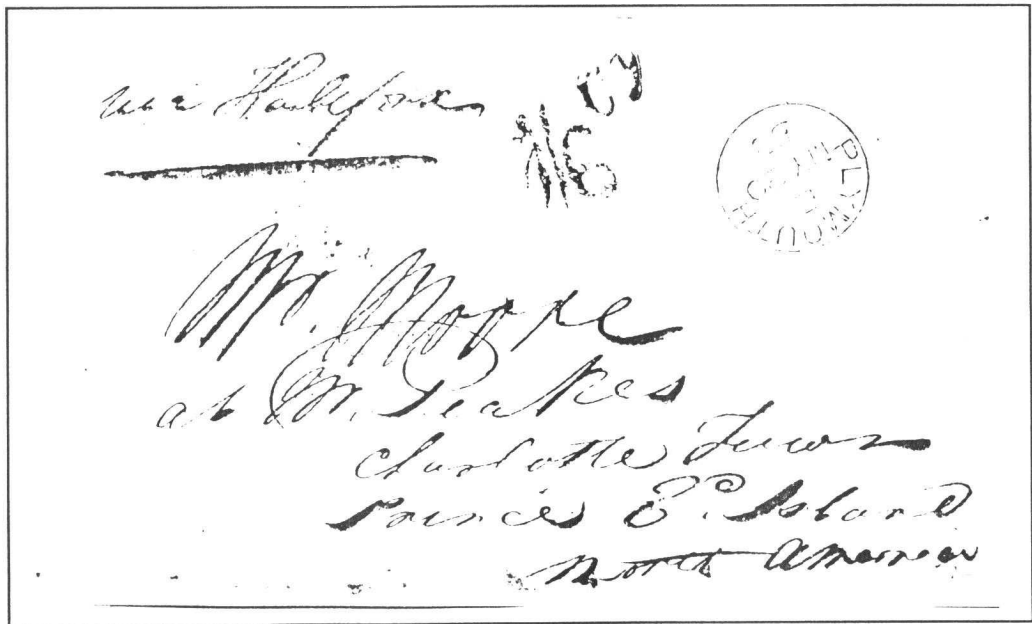 via Halifax
PLYMOUTH
Mr. Moore
at Mr. Peakes
Charlotte Town
Prince Ed. Island
North America